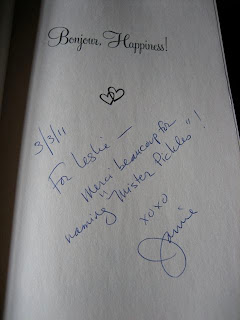 Bonjour, Happiness!
3/3/11
For Leslie —
Merci beaucoup for
naming "Mister Pickles"!
xoxo
Jamie